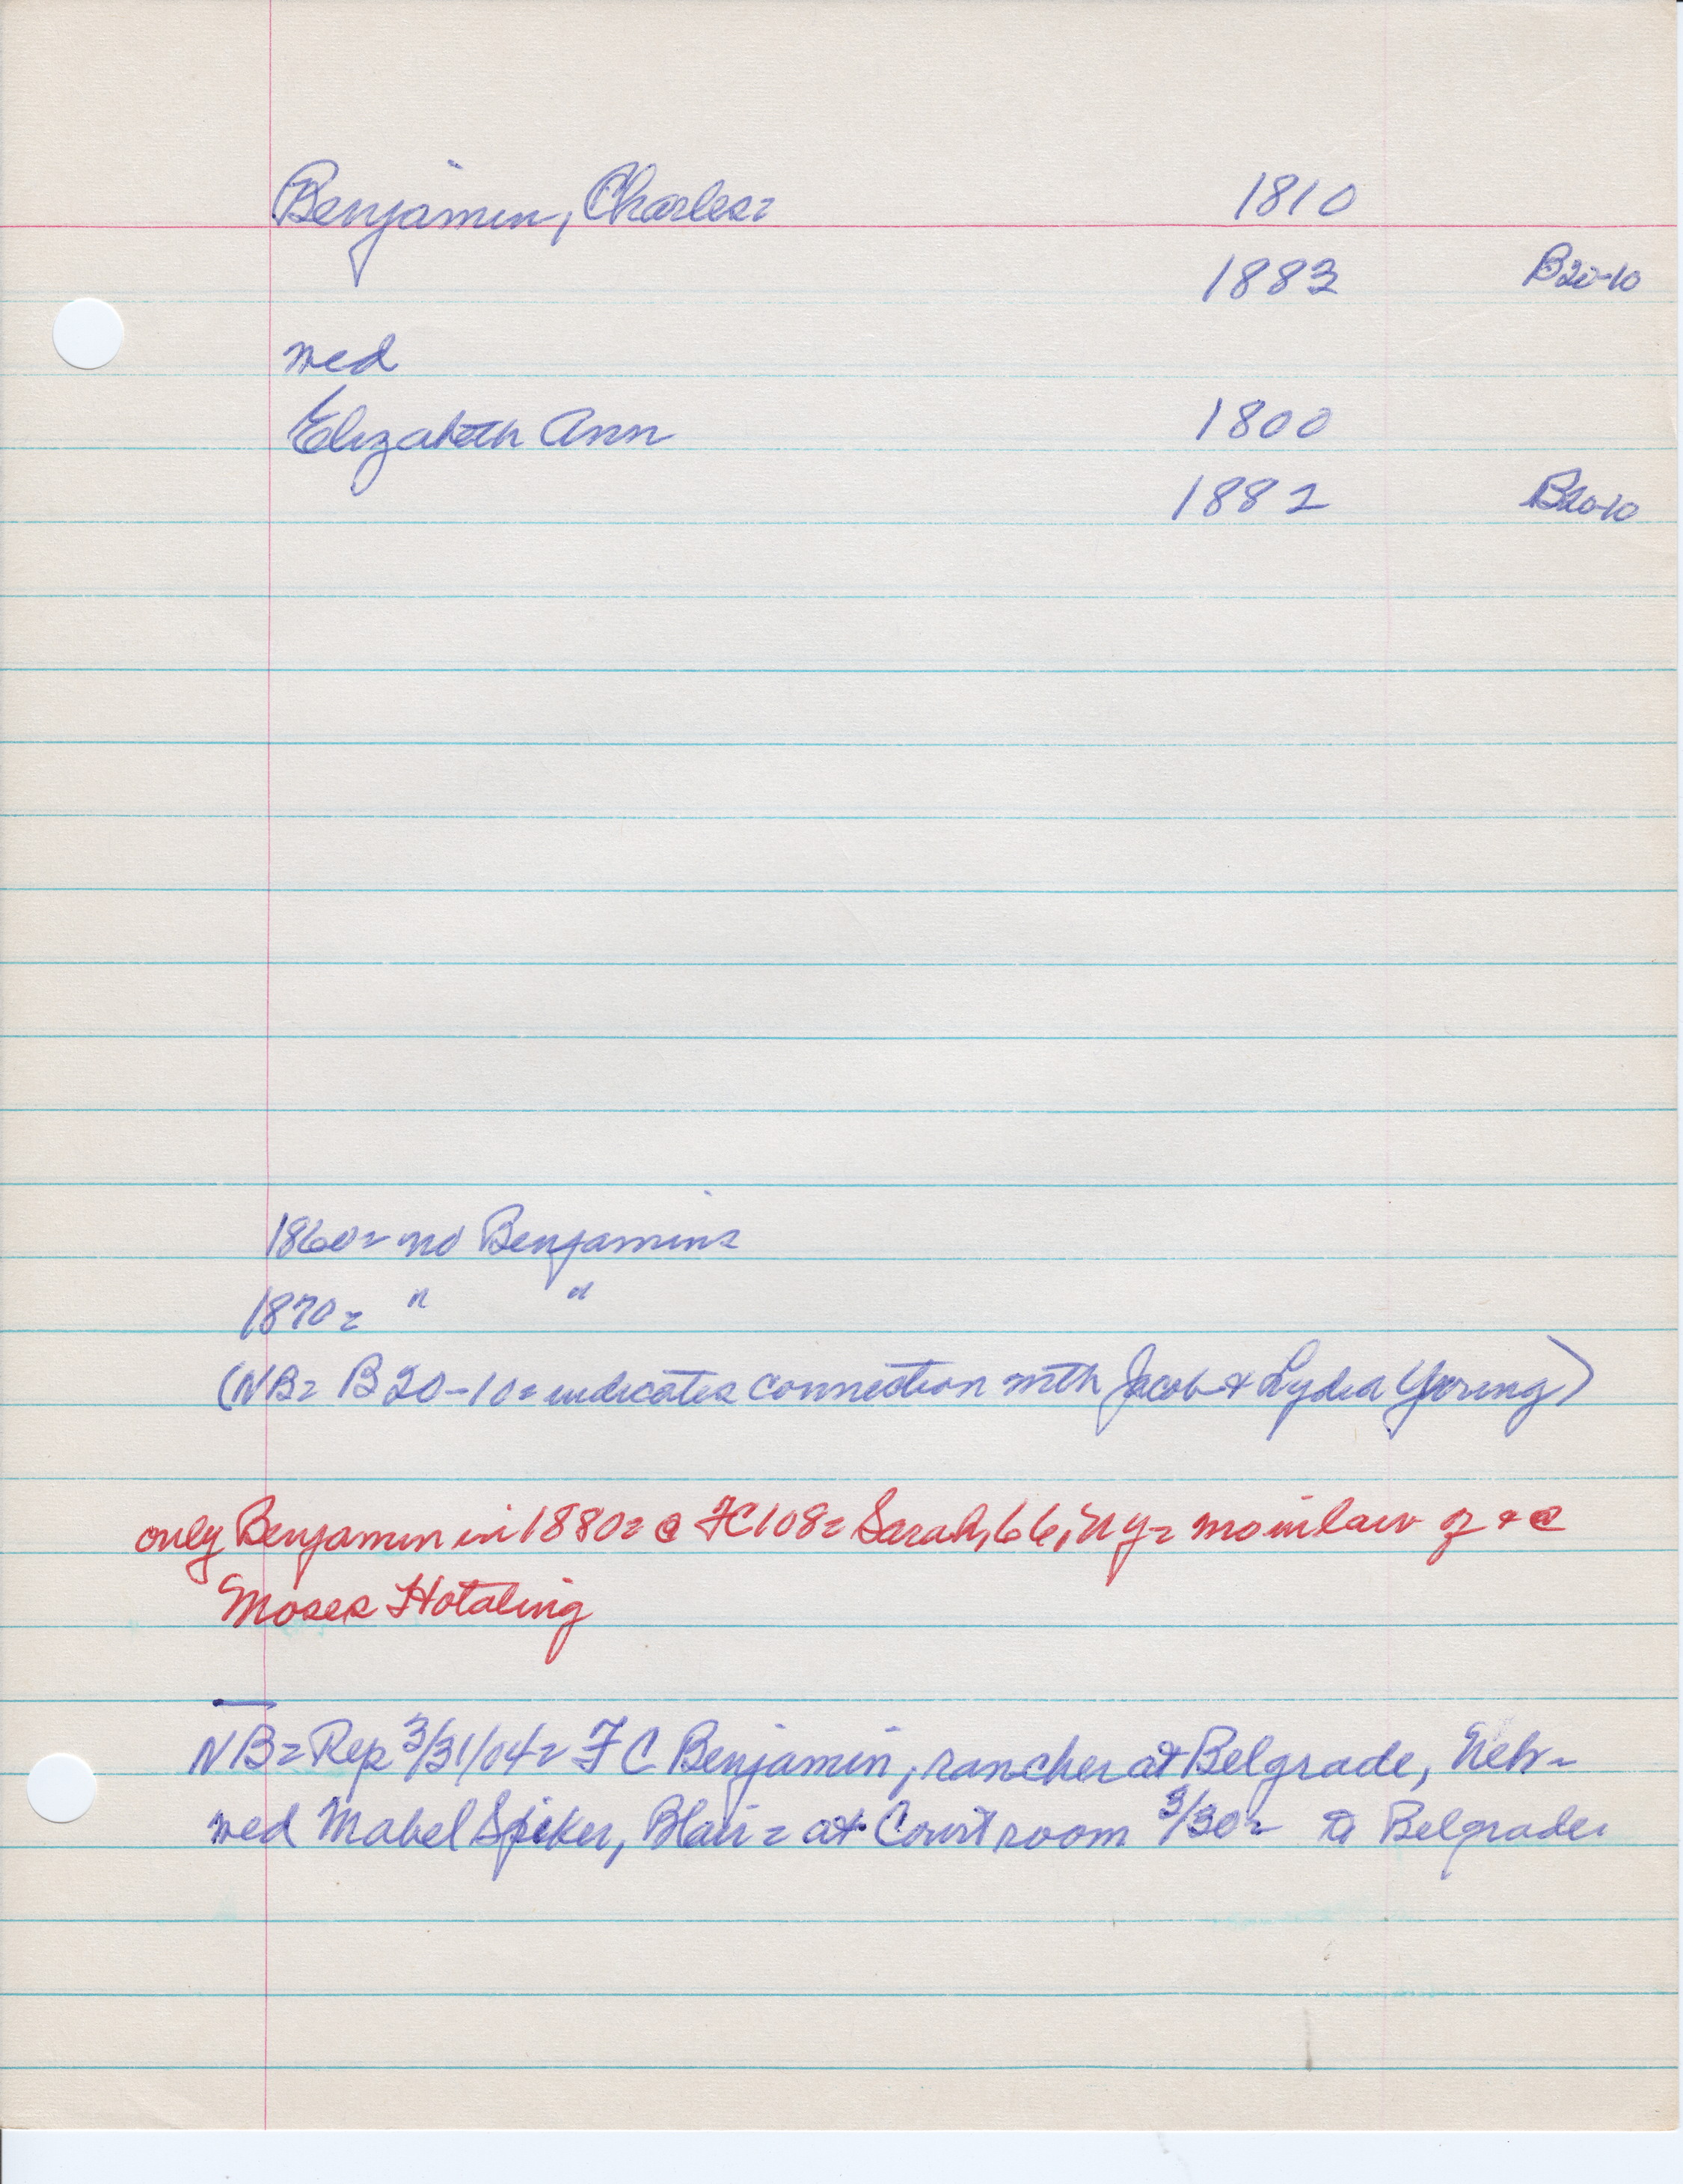 Benjamin, Charles= 1810
1883 B20-10
wed
Elizabeth Ann 1800
1882 B20-10
1860= no Benjamins
1870= " "
(NB= B20-10= indicates connection with Jacob & Lydia Young)
only Benjamin in 1880= @ FC108= Sarah, 66, NY= mo in law of & @
Moses Hotaling
NB= Rep 3/31/04= F C Benjamin, rancher at Belgrade, Neb-
wed Mabel Spiker, Blair= at Court room 3/30= to Belgrade